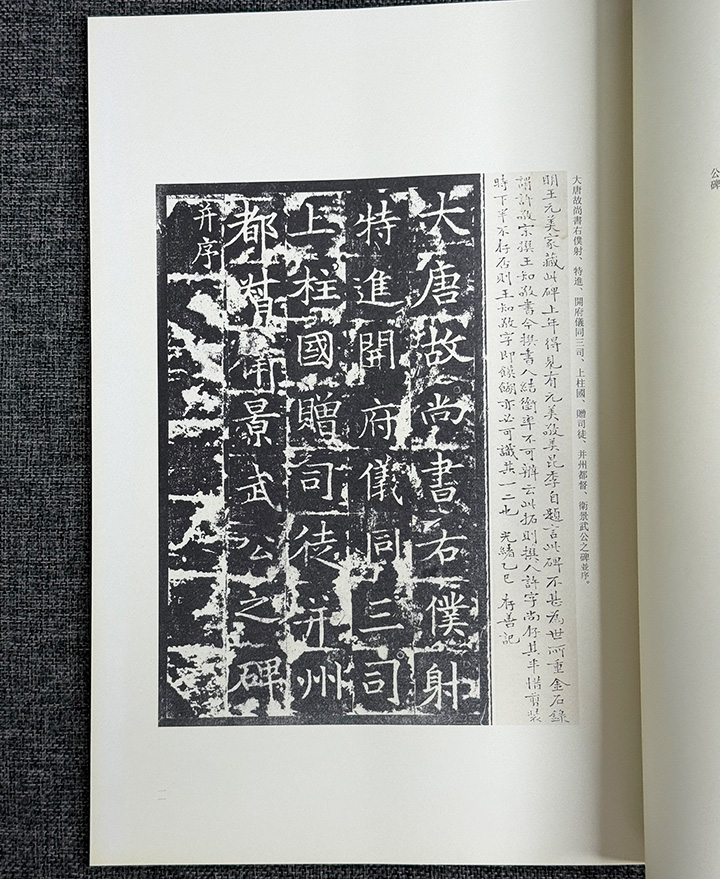 公碑
大唐故尚書右僕射、特進、開府儀同三司、上柱國、贈司徒、并州都督、衛景武公之碑並序。
明王元美家藏此碑上年得見有元美敬美昆季自題言此碑不甚為世所重金石錄
謂許敬宗撰王知敬書今撰書人結銜率不可辨云此拓則撰人許字尚存其半惜剪裝
時下半不存否則王知敬字即餬亦必可識其一二也 光緒乙巳 存善記
大唐故尚書右僕射
特進開府儀同三司
上柱國贈司徒并州
都督衛景武公之碑
并序
一一